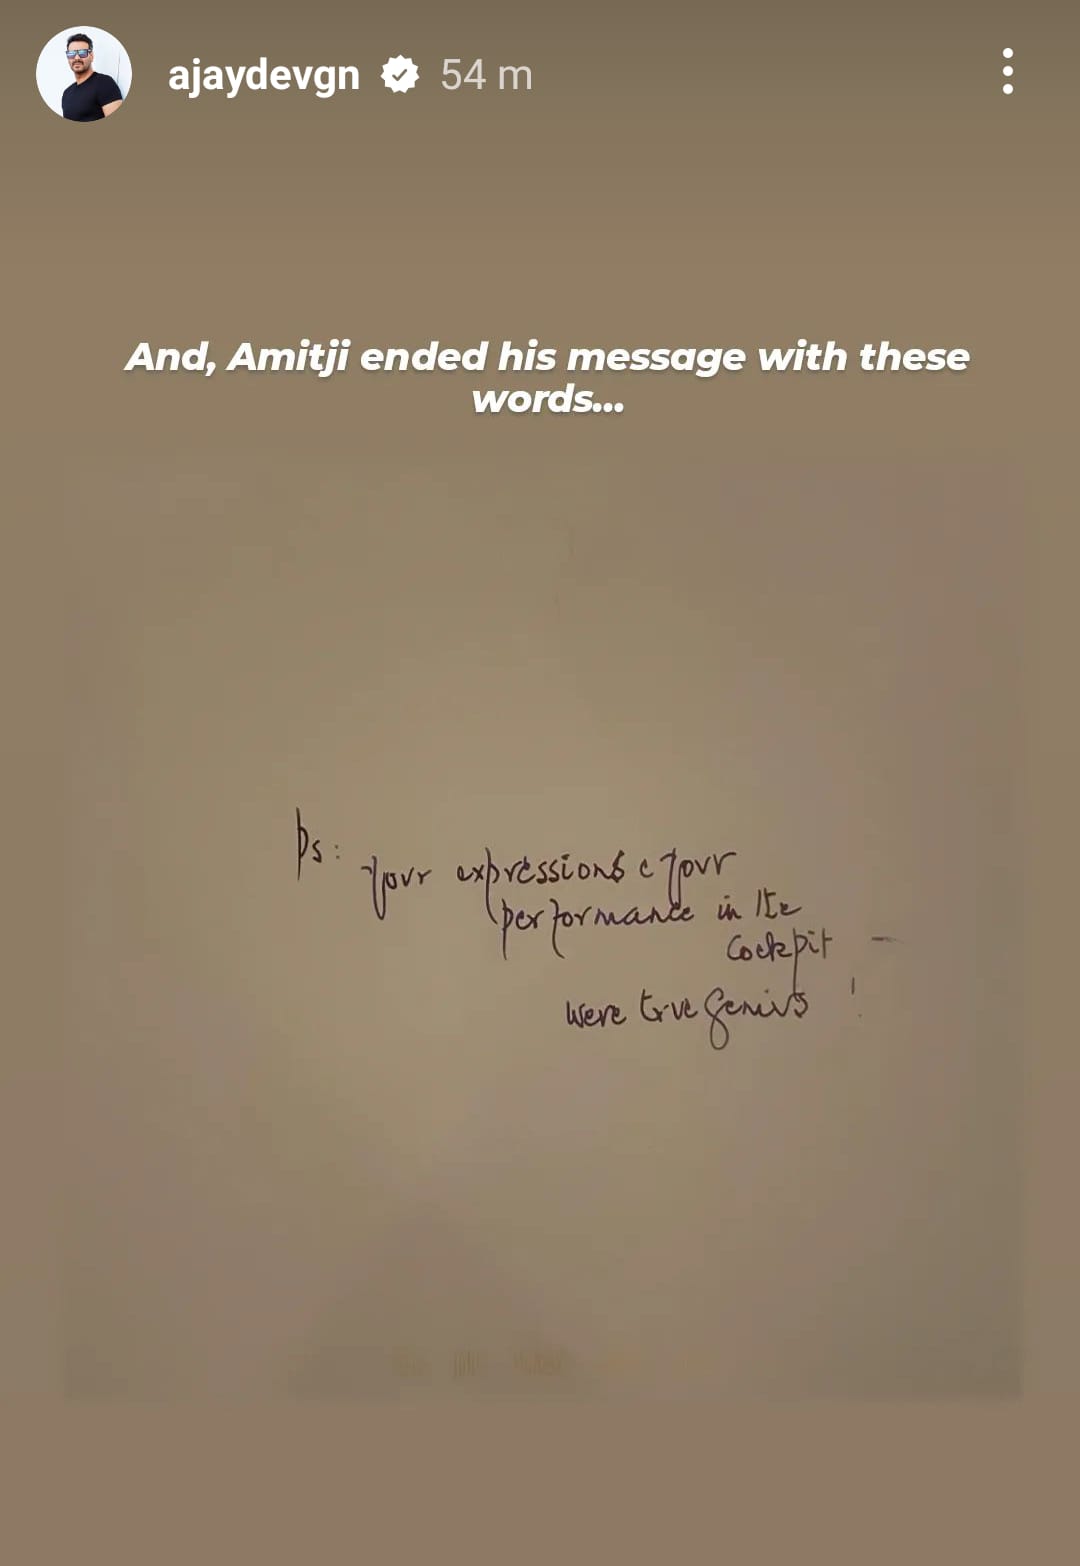 ajaydevgn 54 m
And, Amitji ended his message with these
words...
Ps:
your expressions & your
performance in the
cockpit -
were true genius !